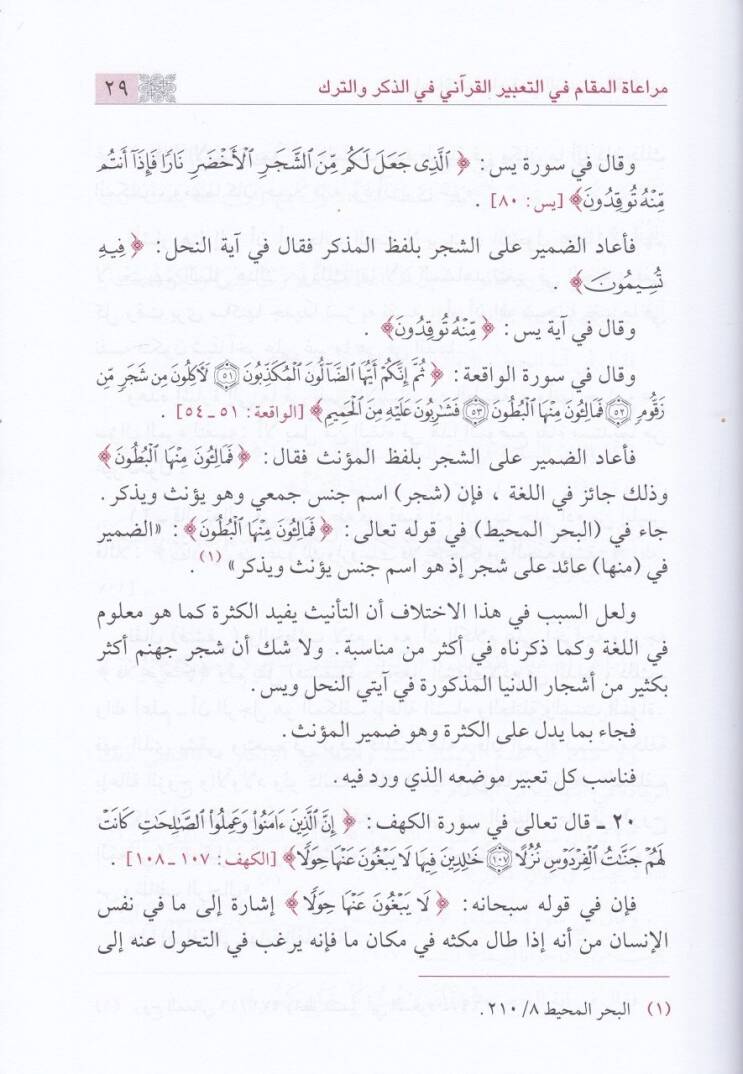 مراعاة المقام في التعبير القرآني في الذكر والترك ٢٩
وقال في سورة يس: ﴿ ٱلَّذِى جَعَلَ لَكُم مِّنَ ٱلشَّجَرِ ٱلْأَخْضَرِ نَارًا فَإِذَآ أَنتُم
مِّنْهُ تُوقِدُونَ﴾ [يس: ٨٠] .
فأعاد الضمير على الشجر بلفظ المذكر فقال في آية النحل: ﴿ فِيهِ
تُسِيمُونَ﴾ .
وقال في آية يس: ﴿ مِّنْهُ تُوقِدُونَ﴾ .
وقال في سورة الواقعة: ﴿ ثُمَّ إِنَّكُمْ أَيُّهَا ٱلضَّآلُّونَ ٱلْمُكَذِّبُونَ ٥١ لَأَكِلُونَ مِن شَجَرٍ مِّن
زَقُّومٍ ٥٢ فَمَالِـُٔونَ مِنْهَا ٱلْبُطُونَ ٥٣ فَشَٰرِبُونَ عَلَيْهِ مِنَ ٱلْحَمِيمِ﴾ [الواقعة: ٥١ ـ ٥٤] .
فأعاد الضمير على الشجر بلفظ المؤنث فقال: ﴿ فَمَالِـُٔونَ مِنْهَا ٱلْبُطُونَ﴾
وذلك جائز في اللغة ، فإن (شجر) اسم جنس جمعي وهو يؤنث ويذكر .
جاء في (البحر المحيط) في قوله تعالى: ﴿ فَمَالِـُٔونَ مِنْهَا ٱلْبُطُونَ﴾ : «الضمير
في (منها) عائد على شجر إذ هو اسم جنس يؤنث ويذكر» (١) .
ولعل السبب في هذا الاختلاف أن التأنيث يفيد الكثرة كما هو معلوم
في اللغة وكما ذكرناه في أكثر من مناسبة . ولا شك أن شجر جهنم أكثر
بكثير من أشجار الدنيا المذكورة في آيتي النحل ويس .
فجاء بما يدل على الكثرة وهو ضمير المؤنث .
فناسب كل تعبير موضعه الذي ورد فيه .
٢٠ ـ قال تعالى في سورة الكهف: ﴿ إِنَّ ٱلَّذِينَ ءَامَنُوا۟ وَعَمِلُوا۟ ٱلصَّٰلِحَٰتِ كَانَتْ
لَهُمْ جَنَّٰتُ ٱلْفِرْدَوْسِ نُزُلًا ١٠٧ خَٰلِدِينَ فِيهَا لَا يَبْغُونَ عَنْهَا حِوَلًا﴾ [الكهف: ١٠٧ ـ ١٠٨] .
فإن في قوله سبحانه: ﴿ لَا يَبْغُونَ عَنْهَا حِوَلًا﴾ إشارة إلى ما في نفس
الإنسان من أنه إذا طال مكثه في مكان ما فإنه يرغب في التحول عنه إلى
(١) البحر المحيط ٨/ ٢١٠ .